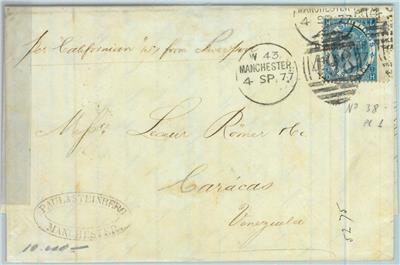 MANCHESTER
4 SP 77
498
W 43
MANCHESTER
4 SP. 77
per Californian s/s from Liverpool
Nº 38
pl 1
Messrs Leseur Römer & Co
Carácas
Venezuela
PAUL & STEINBERG
MANCHESTER
10.000-